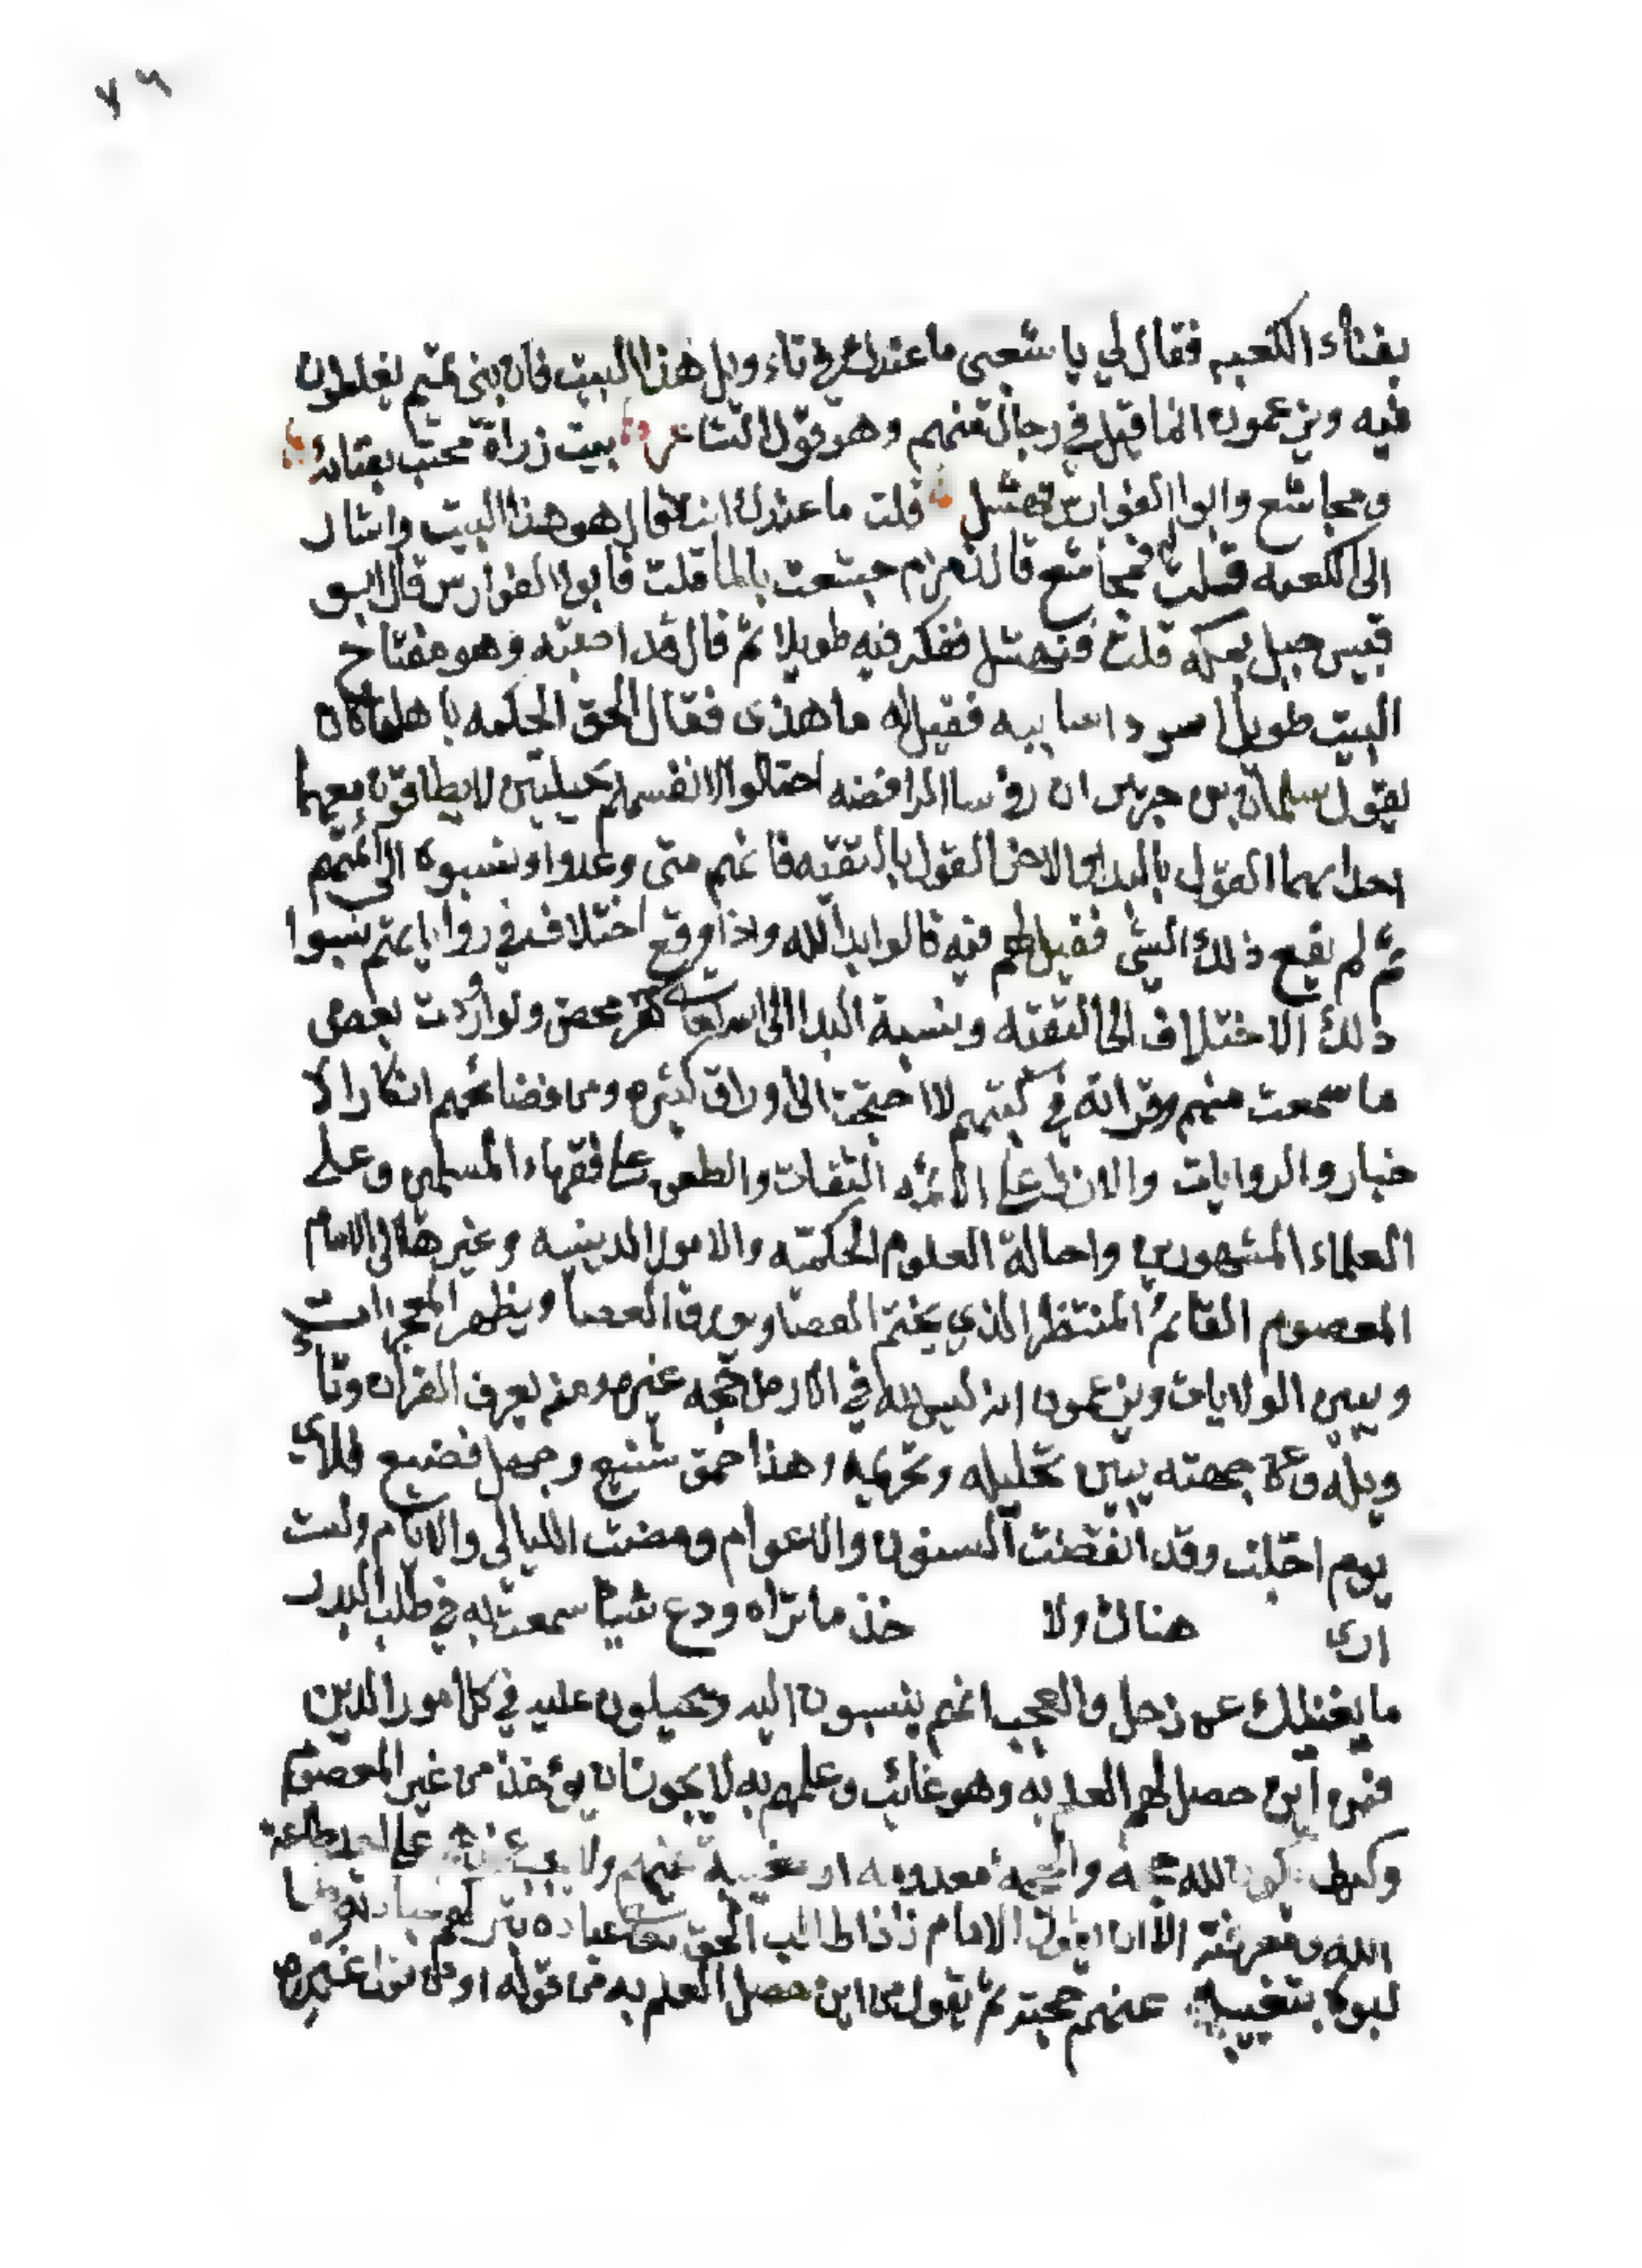 ٧٦
بفناء الكعبه فقال لي يا شعبي ما عندك في تاءويل هذا البيت فان بني تميم يغلطون
فيه ويزعمون انما قيل في رجال منهم وهو قول الشاعر بيت زرارة محتب بفنائه
ومجاشع وابوا الفوارس نهشل قلت ما عندك انت قال هو هذا البيت واشار
الى الكعبه قلت فمجاشع قال زمزم جشعت بالما قلت فابوا الفوارس قال ابو
قبيس جبل بمكه قلت فنهشل ففكر فيه طويلا ثم قال قد اصبته وهو مفتاح
البيت طويل اسود فقيل له ما هذى فقال الحق الحكمه باهلها كان
يقول سليمان بن جرير ان روسا الرافضه احتالوا لانفسهم بحيلتين لا يطاقون معهما
احدايهما القول بالبدا والاخر القول بالتقيه فانهم متى وعدوا ونسبوه الى ائمتهم
ثم لم يقع ذلك الشي فقيل لهم فيه قالوا بدا لله واذا وقع اختلاف في رواياتهم نسبوا
ذلك الاختلاف الى التقيه ونسبة البدا الى الله تعالى كفر محض ولو اردت بعض
ما سمعت منهم وقراته في كتبهم لاحتجت الى اوراق كثيره ومن فضائحهم انكار الا
خبار والروايات على الائمه الثقات والطعن على فقهاء المسلمين وعلى
العلماء المشهورين واحالة العلوم الحكميه والامور الدينيه وغيرها الى الامام
المعصوم القائم المنتظر الذي يختم العصا ويورق العصا ويظهر المعجزات
ويبين الولايات ويزعمون انه ليس لله في الارض حجه غيره ومنه يعرف القران وتا
ويله ومن جهته يبين تحليله وتحريمه وهذا حمق شنيع وجهل فضيع فلاي
يوم اجلت وقد انقضت السنون والاعوام ومضت الليالي والايام ولست
ارى هناك ولا خذ ما تراه ودع شيئا سمعت به في طلب البدر
ما يغنيك عن زحل والعجب انهم ينسبون اليه ويحيلون عليه في كل امور الدين
فمن اين حصل لهم العلم به وهو غائب وعلمهم به لا يجوز ان يؤخذ من غير المعصوم
وكيف لله حجه والحجة معدومه او مغيبة عنهم ولا يجب على احد طاعة
الله ومعرفته الا ان يقول الامام فاذا طالب الحق تعالى عباده
بتغيبه عنهم حجته ثم يقول من اين حصل العلم به من قوله او من قول غيره